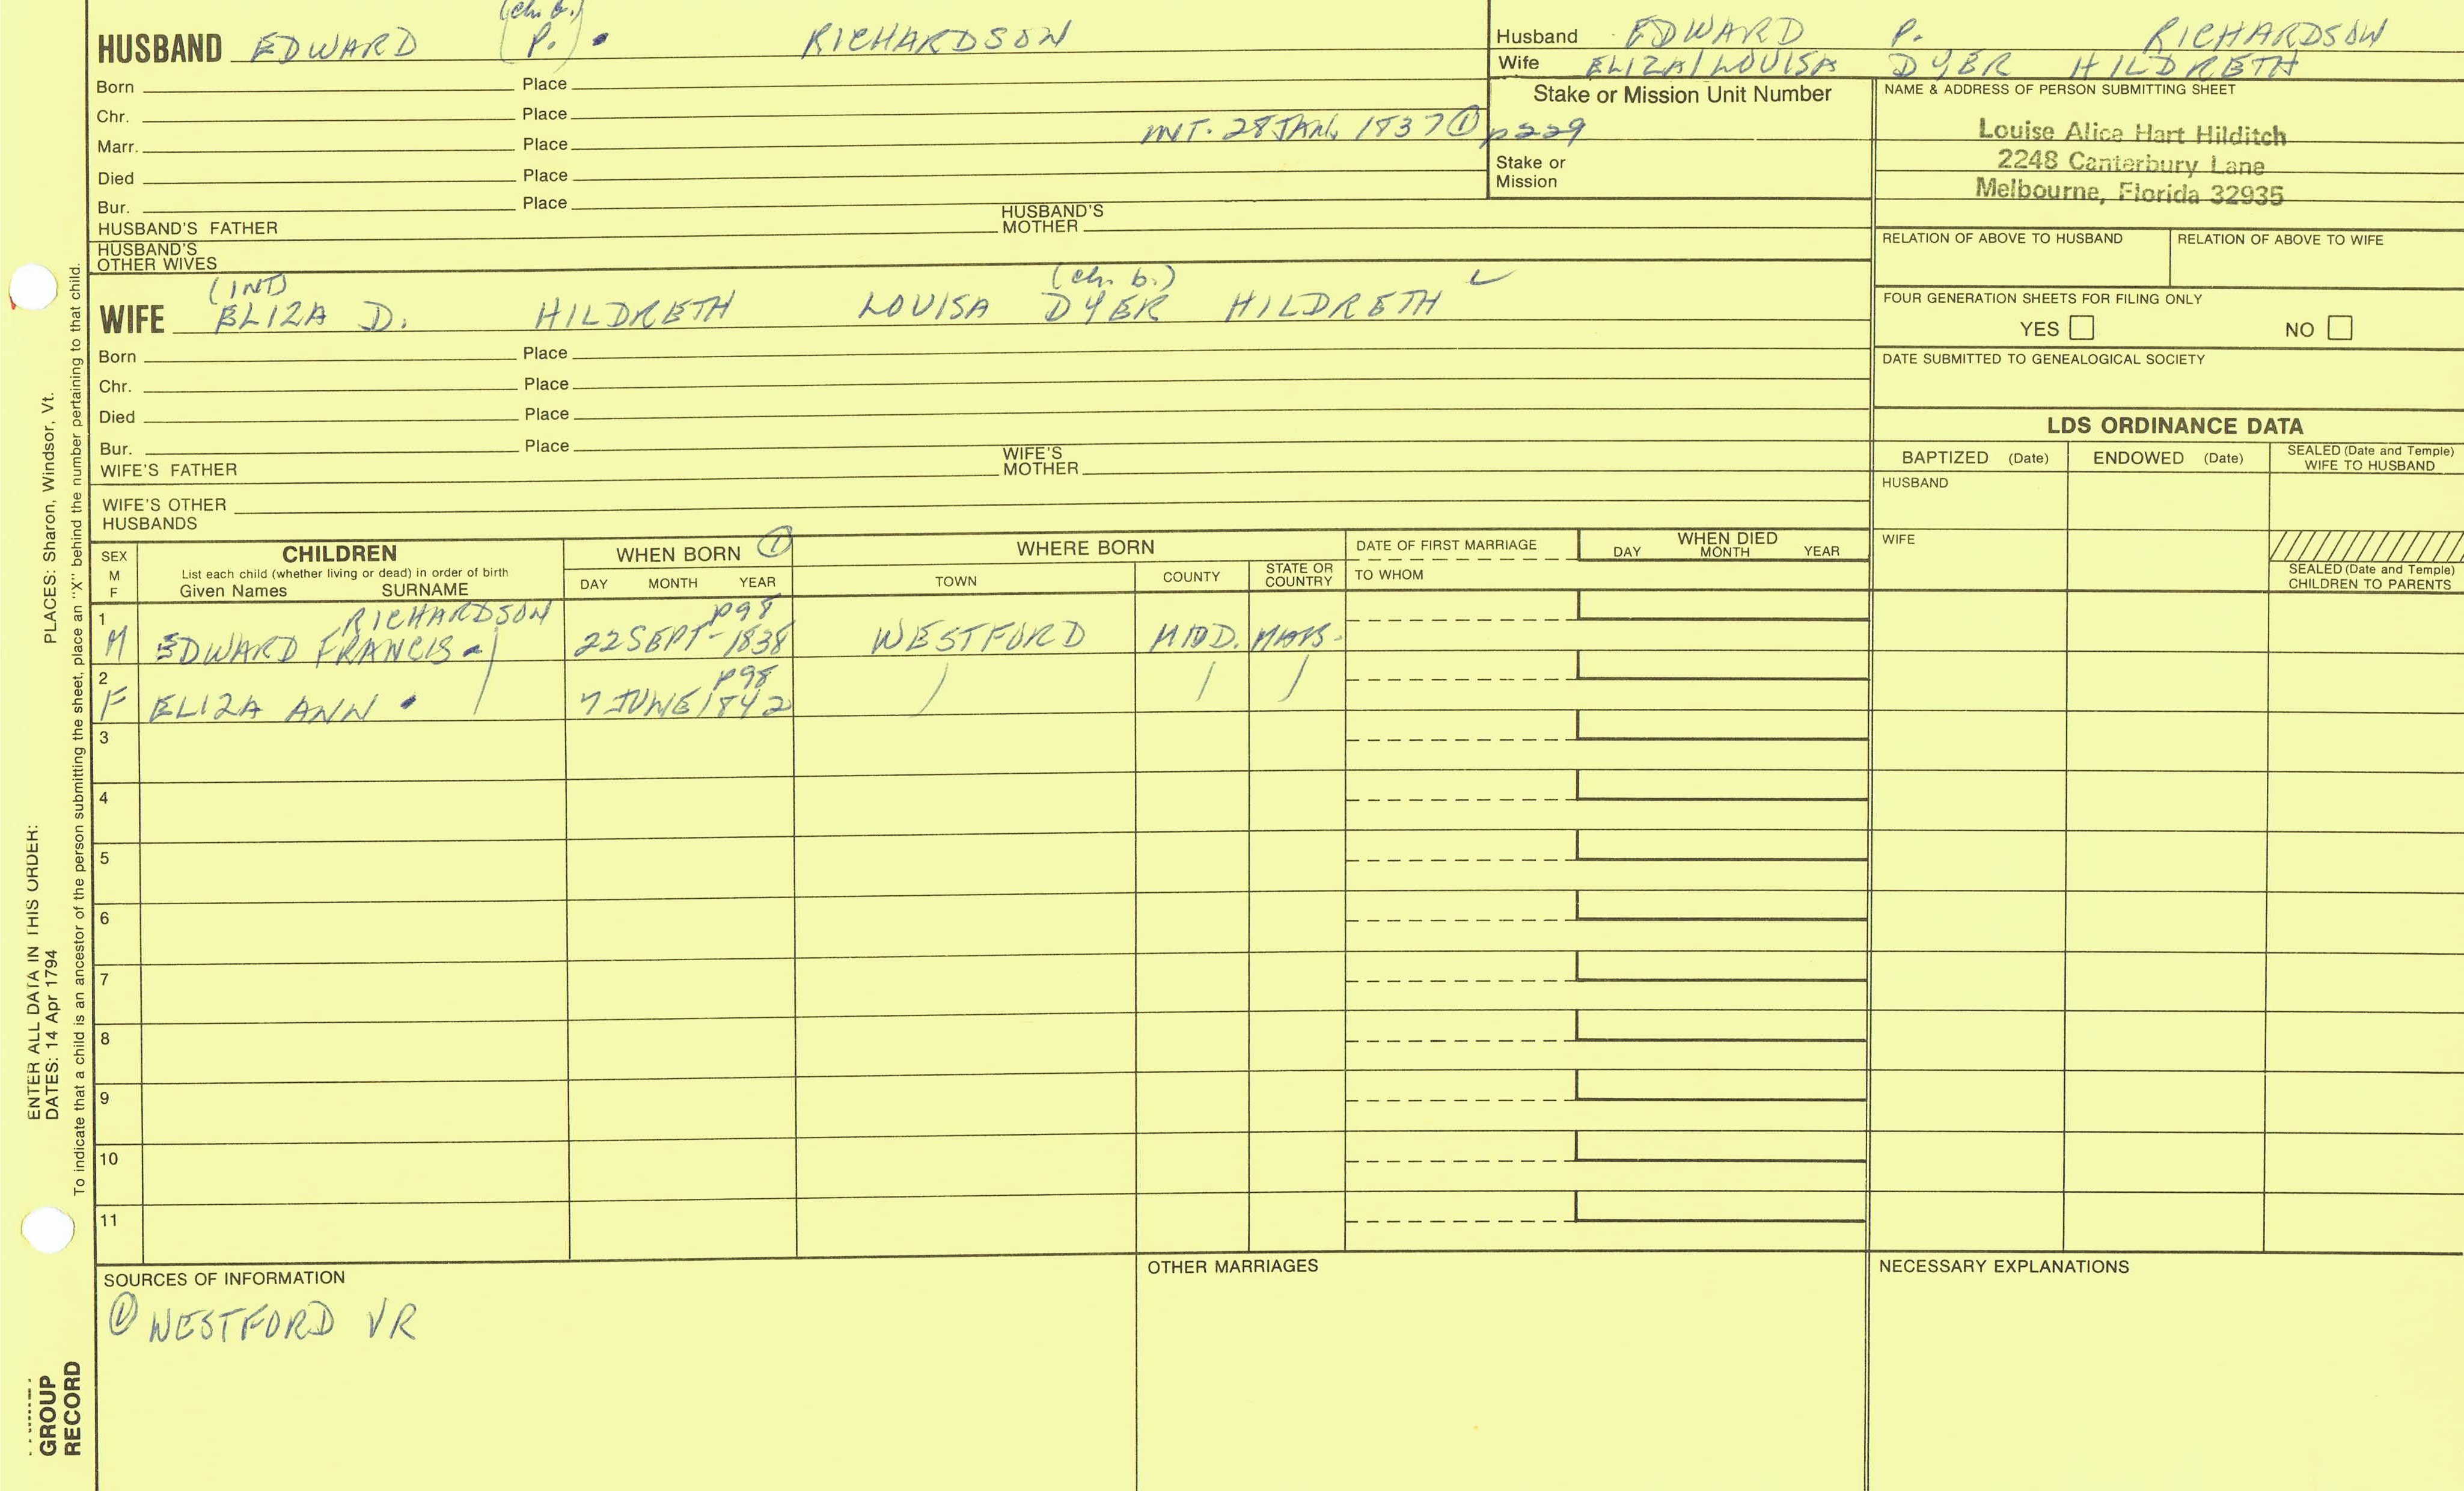 (ch. b.)
HUSBAND EDWARD (P.) RICHARDSON
Husband EDWARD P. RICHARDSON
Wife ELIZA/LOUISA DYER HILDRETH
Born Place
Chr. Place
Marr. Place INT. 28 JAN, 1837 ① p229
Died Place
Bur. Place
HUSBAND'S FATHER HUSBAND'S MOTHER
HUSBAND'S OTHER WIVES
Stake or Mission Unit Number
Stake or
Mission
NAME & ADDRESS OF PERSON SUBMITTING SHEET
Louise Alice Hart Hilditch
2248 Canterbury Lane
Melbourne, Florida 32935
RELATION OF ABOVE TO HUSBAND RELATION OF ABOVE TO WIFE
FOUR GENERATION SHEETS FOR FILING ONLY
YES NO
DATE SUBMITTED TO GENEALOGICAL SOCIETY
(INT) (ch. b.)
WIFE ELIZA D. HILDRETH LOUISA DYER HILDRETH
Born Place
Chr. Place
Died Place
Bur. Place
WIFE'S FATHER WIFE'S MOTHER
WIFE'S OTHER HUSBANDS
LDS ORDINANCE DATA
BAPTIZED (Date) ENDOWED (Date) SEALED (Date and Temple) WIFE TO HUSBAND
HUSBAND
WIFE
SEALED (Date and Temple) CHILDREN TO PARENTS
SEX M F
CHILDREN
List each child (whether living or dead) in order of birth
Given Names SURNAME
WHEN BORN ①
DAY MONTH YEAR
WHERE BORN
TOWN COUNTY STATE OR COUNTRY
DATE OF FIRST MARRIAGE
TO WHOM
WHEN DIED
DAY MONTH YEAR
1 RICHARDSON p98
M EDWARD FRANCIS 22 SEPT 1838 WESTFORD MIDD. MASS.
2 p98
F ELIZA ANN 7 JUNE 1842
3
4
5
6
7
8
9
10
11
SOURCES OF INFORMATION
① WESTFORD VR
OTHER MARRIAGES
NECESSARY EXPLANATIONS
ENTER ALL DATA IN THIS ORDER:
DATES: 14 Apr 1794 PLACES: Sharon, Windsor, Vt.
To indicate that a child is an ancestor of the person submitting the sheet, place an "X" behind the number pertaining to that child.
GROUP
RECORD